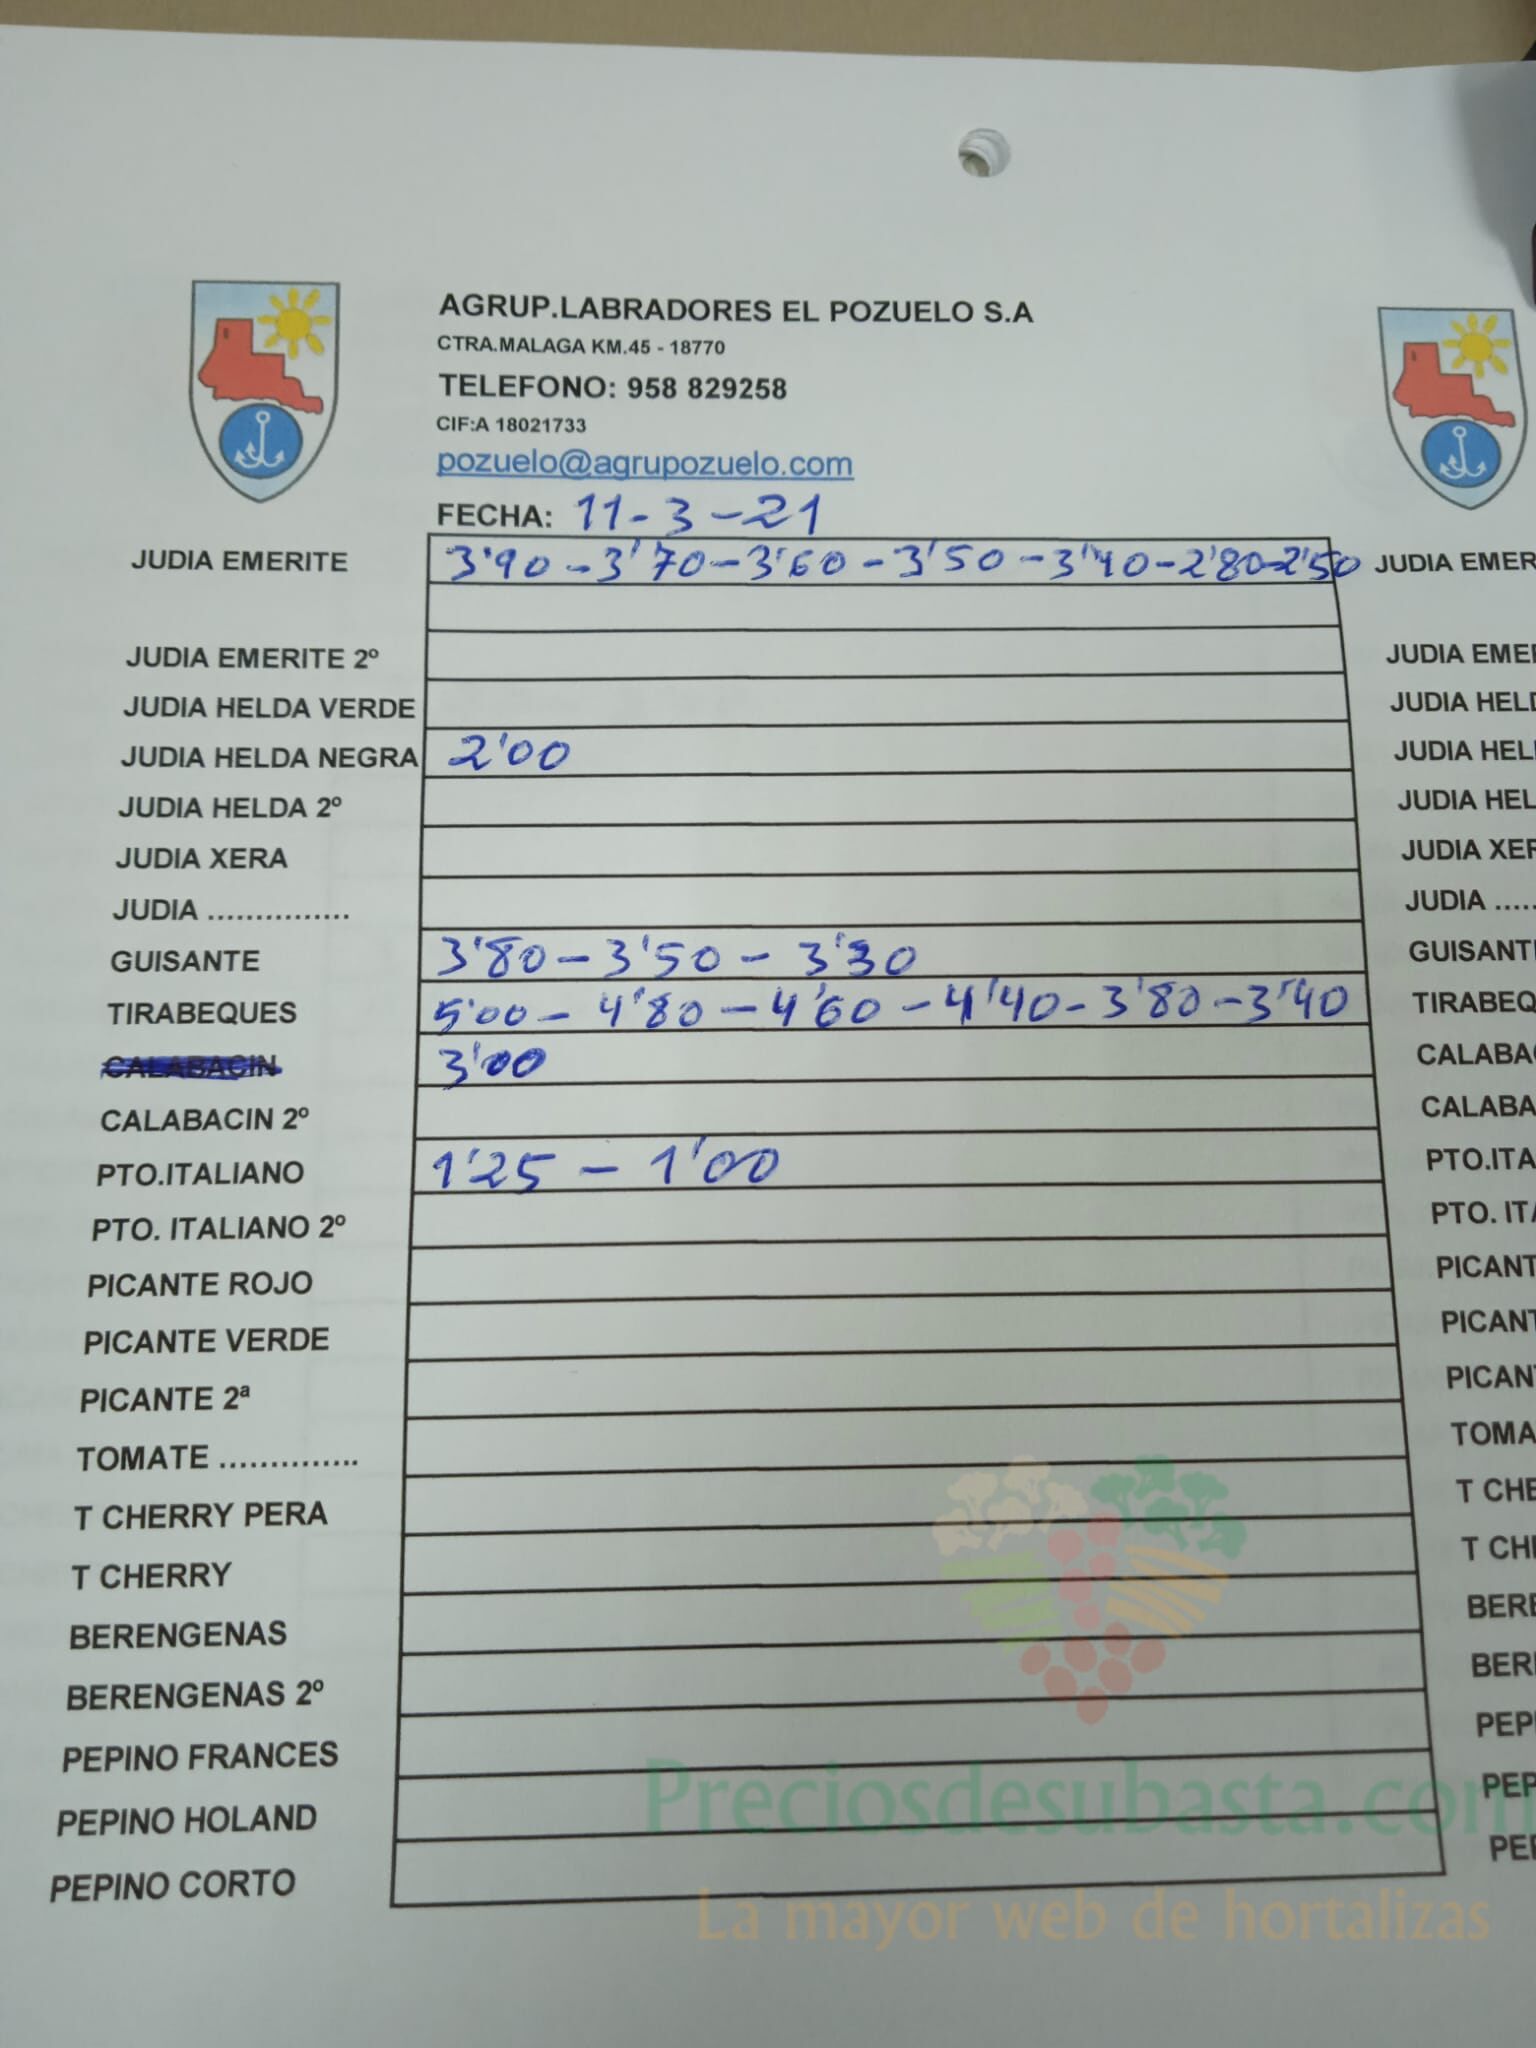 AGRUP.LABRADORES EL POZUELO S.A
CTRA.MALAGA KM.45 - 18770
TELEFONO: 958 829258
CIF:A 18021733
pozuelo@agrupozuelo.com
FECHA: 11-3-21
JUDIA EMERITE 3'90-3'70-3'60-3'50-3'40-2'80-2'50 JUDIA EMER
JUDIA EMERITE 2º JUDIA EME
JUDIA HELDA VERDE JUDIA HELD
JUDIA HELDA NEGRA 2'00 JUDIA HEL
JUDIA HELDA 2º JUDIA HEL
JUDIA XERA JUDIA XER
JUDIA ............... JUDIA .....
GUISANTE 3'80-3'50-3'30 GUISANT
TIRABEQUES 5'00-4'80-4'60-4'40-3'80-3'40 TIRABEQ
CALABACIN 3'00 CALABA
CALABACIN 2º CALABA
PTO.ITALIANO 1'25-1'00 PTO.ITA
PTO. ITALIANO 2º PTO. ITA
PICANTE ROJO PICANT
PICANTE VERDE PICANT
PICANTE 2ª PICAN
TOMATE .............. TOMA
T CHERRY PERA T CHE
T CHERRY T CHE
BERENGENAS BERE
BERENGENAS 2º BERE
PEPINO FRANCES PEPI
PEPINO HOLAND PEP
PEPINO CORTO PEP
Preciosdesubasta.com
La mayor web de hortalizas